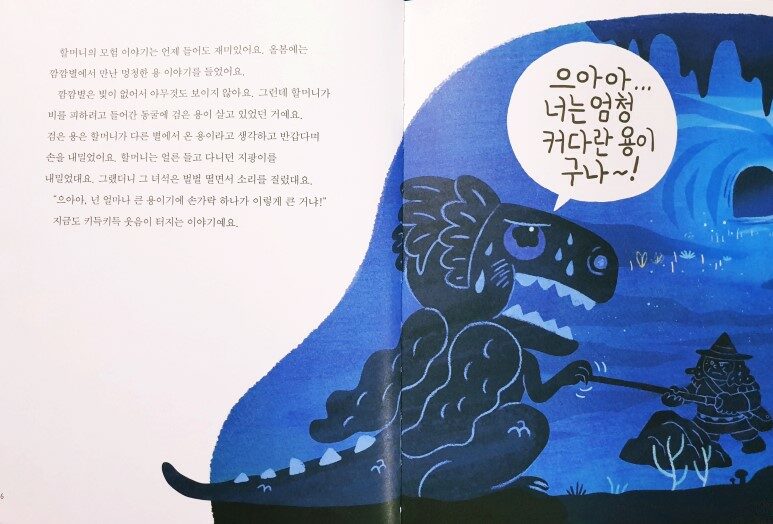 할머니의 모험 이야기는 언제 들어도 재미있어요. 올봄에는
깜깜별에서 만난 멍청한 용 이야기를 들었어요.
깜깜별은 빛이 없어서 아무것도 보이지 않아요. 그런데 할머니가
비를 피하려고 들어간 동굴에 검은 용이 살고 있었던 거예요.
검은 용은 할머니가 다른 별에서 온 용이라고 생각하고 반갑다며
손을 내밀었어요. 할머니는 얼른 들고 다니던 지팡이를
내밀었대요. 그랬더니 그 녀석은 벌벌 떨면서 소리를 질렀대요.
"으아아, 넌 얼마나 큰 용이기에 손가락 하나가 이렇게 큰 거냐!"
지금도 키득키득 웃음이 터지는 이야기예요.
으아아...
너는 엄청
커다란 용이
구나~!
6